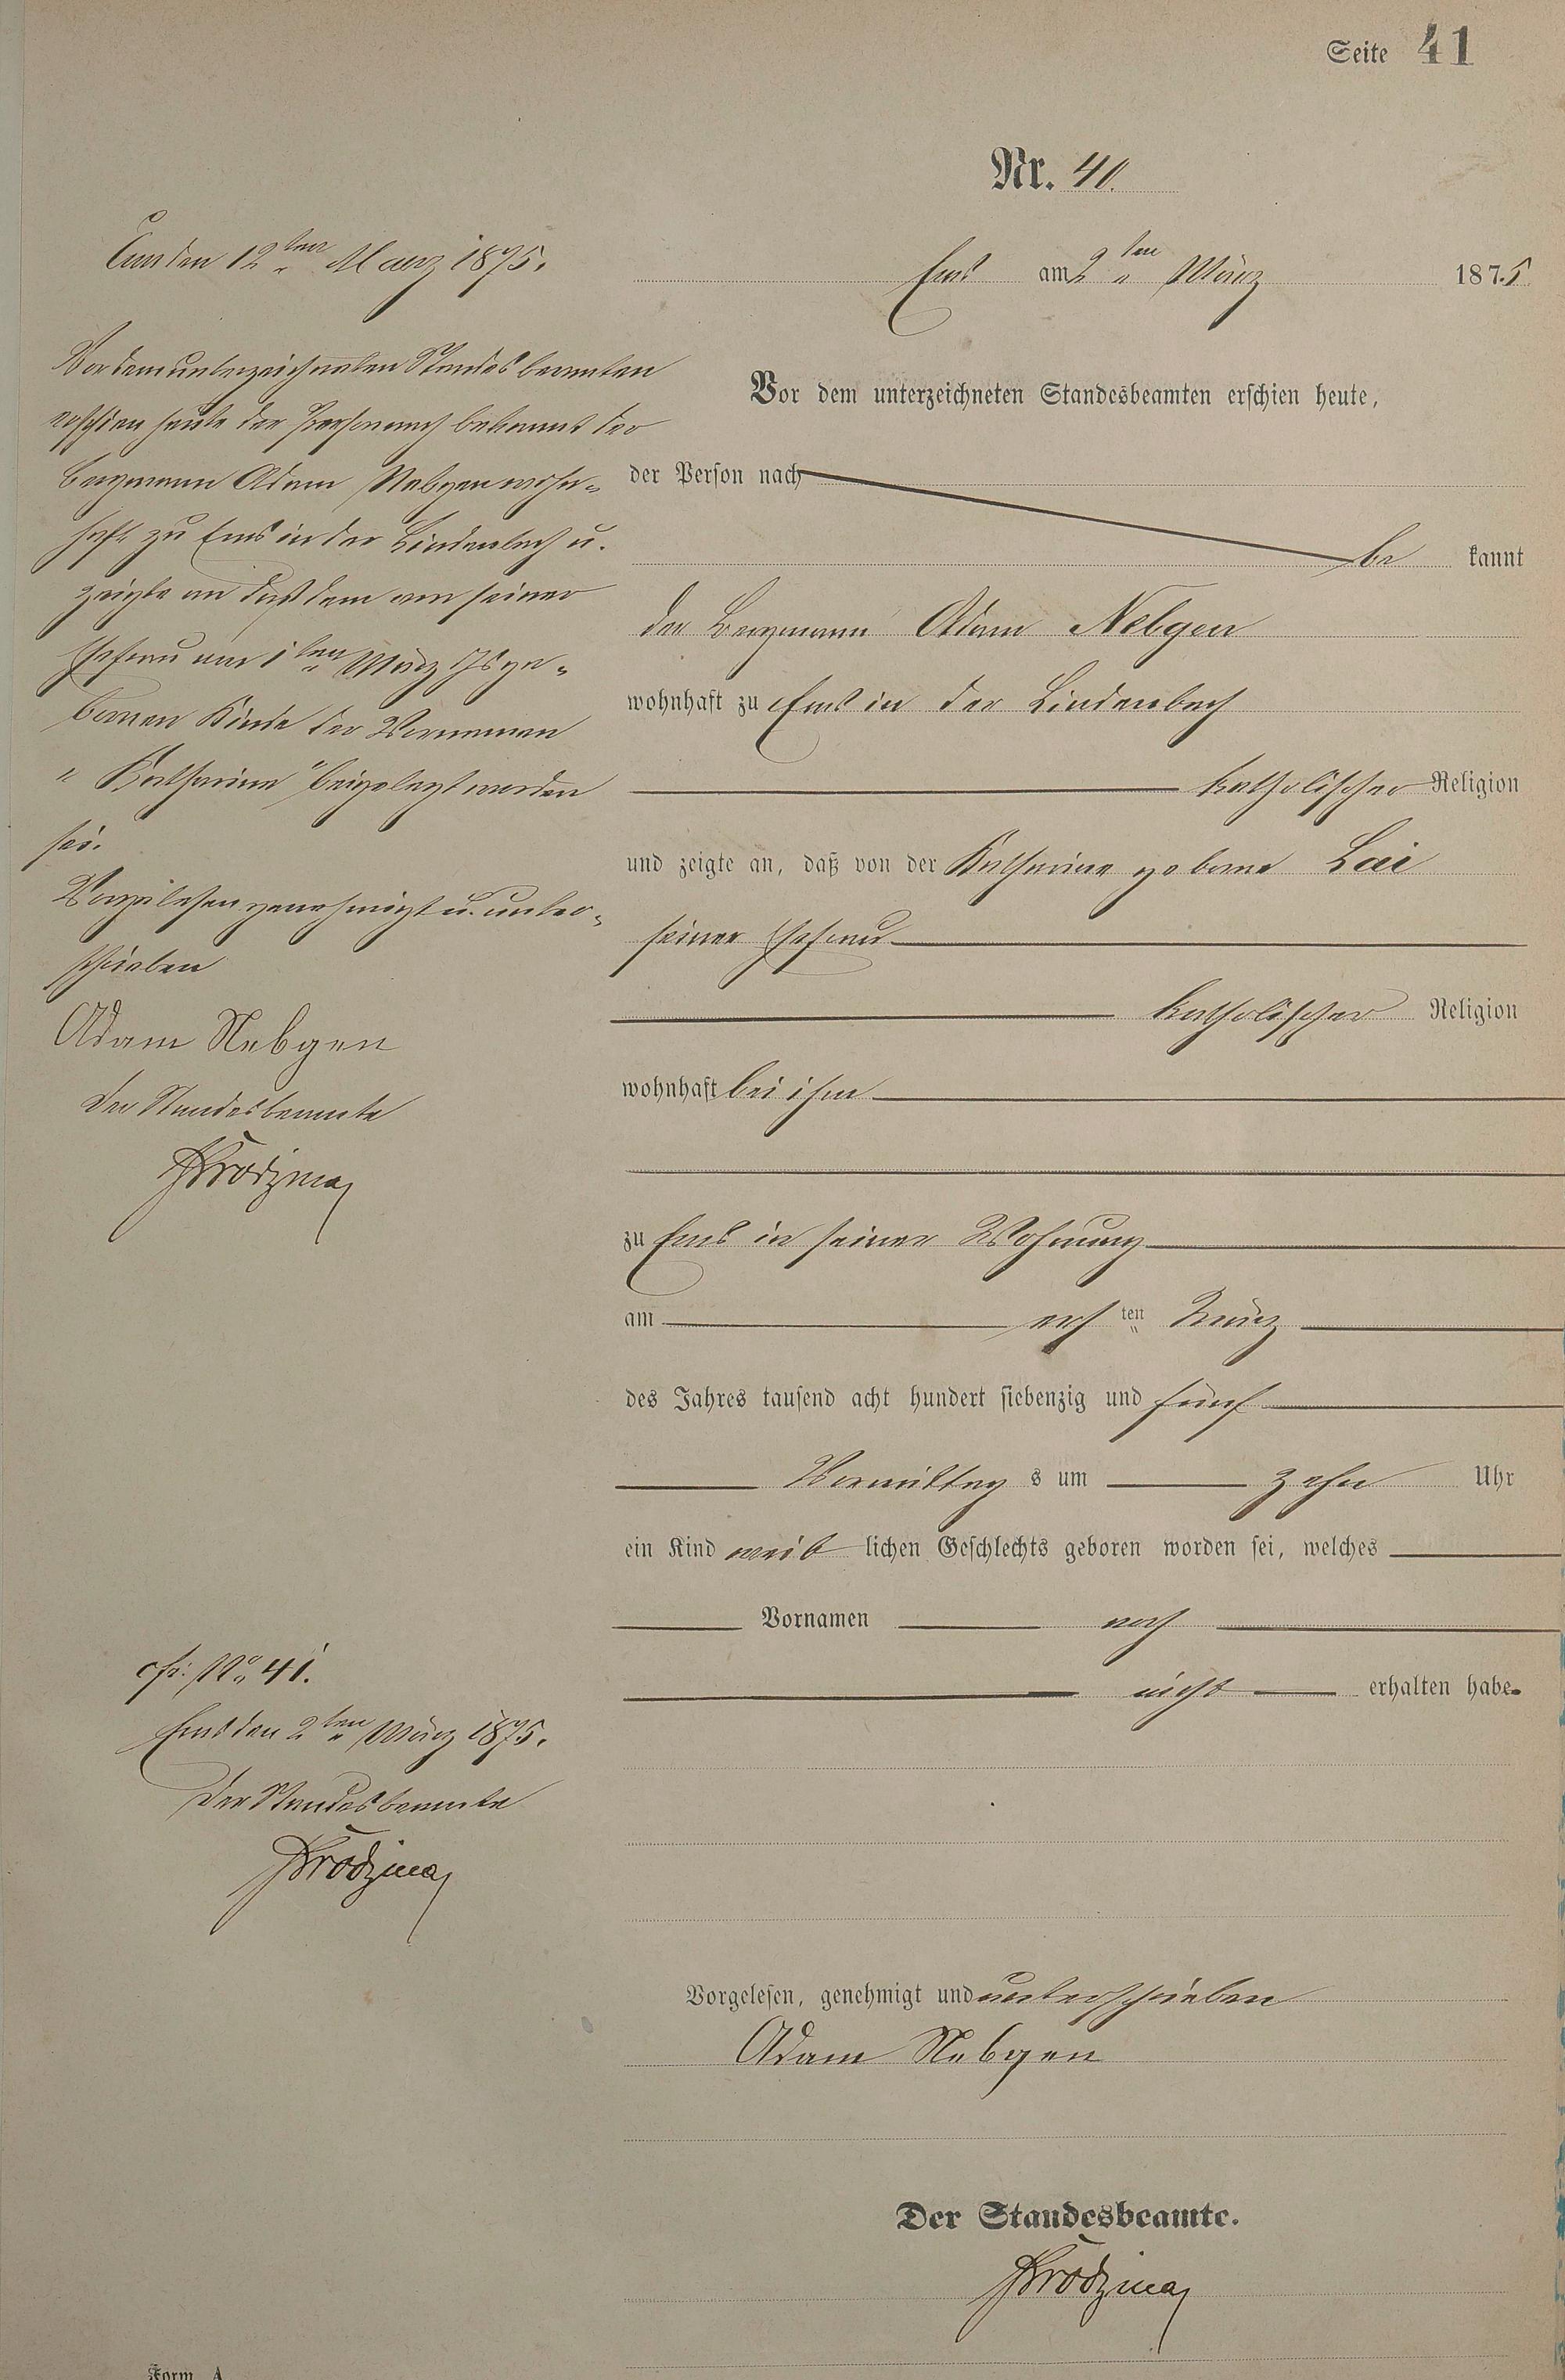 Seite 41
Nr. 40.
Ems am 2ten März 1875
Vor dem unterzeichneten Standesbeamten erschien heute,
der Person nach
be kannt
der Bergmann Adam Nebgen
wohnhaft zu Ems in der Lindenbach
katholischer Religion
und zeigte an, daß von der Katharine geborne Lai
seiner Ehefrau
katholischer Religion
wohnhaft bei ihm
zu Ems in seiner Wohnung
am ersten März
des Jahres tausend acht hundert siebenzig und fünf
Vormittag s um zehn Uhr
ein Kind weib lichen Geschlechts geboren worden sei, welches
Vornamen noch
nicht erhalten habe
Vorgelesen, genehmigt und unterschrieben
Adam Nebgen
Der Standesbeamte.
Ems den 12ten Maerz 1875.
Vor dem unterzeichneten Standesbeamten
erschien heute der Person nach bekannt der
Bergmann Adam Nebgen wohn-
haft zu Ems in der Lindenbach u.
zeigte an daß dem von seiner
Ehefrau am 1ten März Js ge-
bornen Kinde der Vornamen
"Katharina" beigelegt worden
sei.
Vorgelesen genehmigt u. unter-
schrieben
Adam Nebgen
Der Standesbeamte
cfr: No 41.
Ems den 2ten März 1875.
Der Standesbeamte
Form A